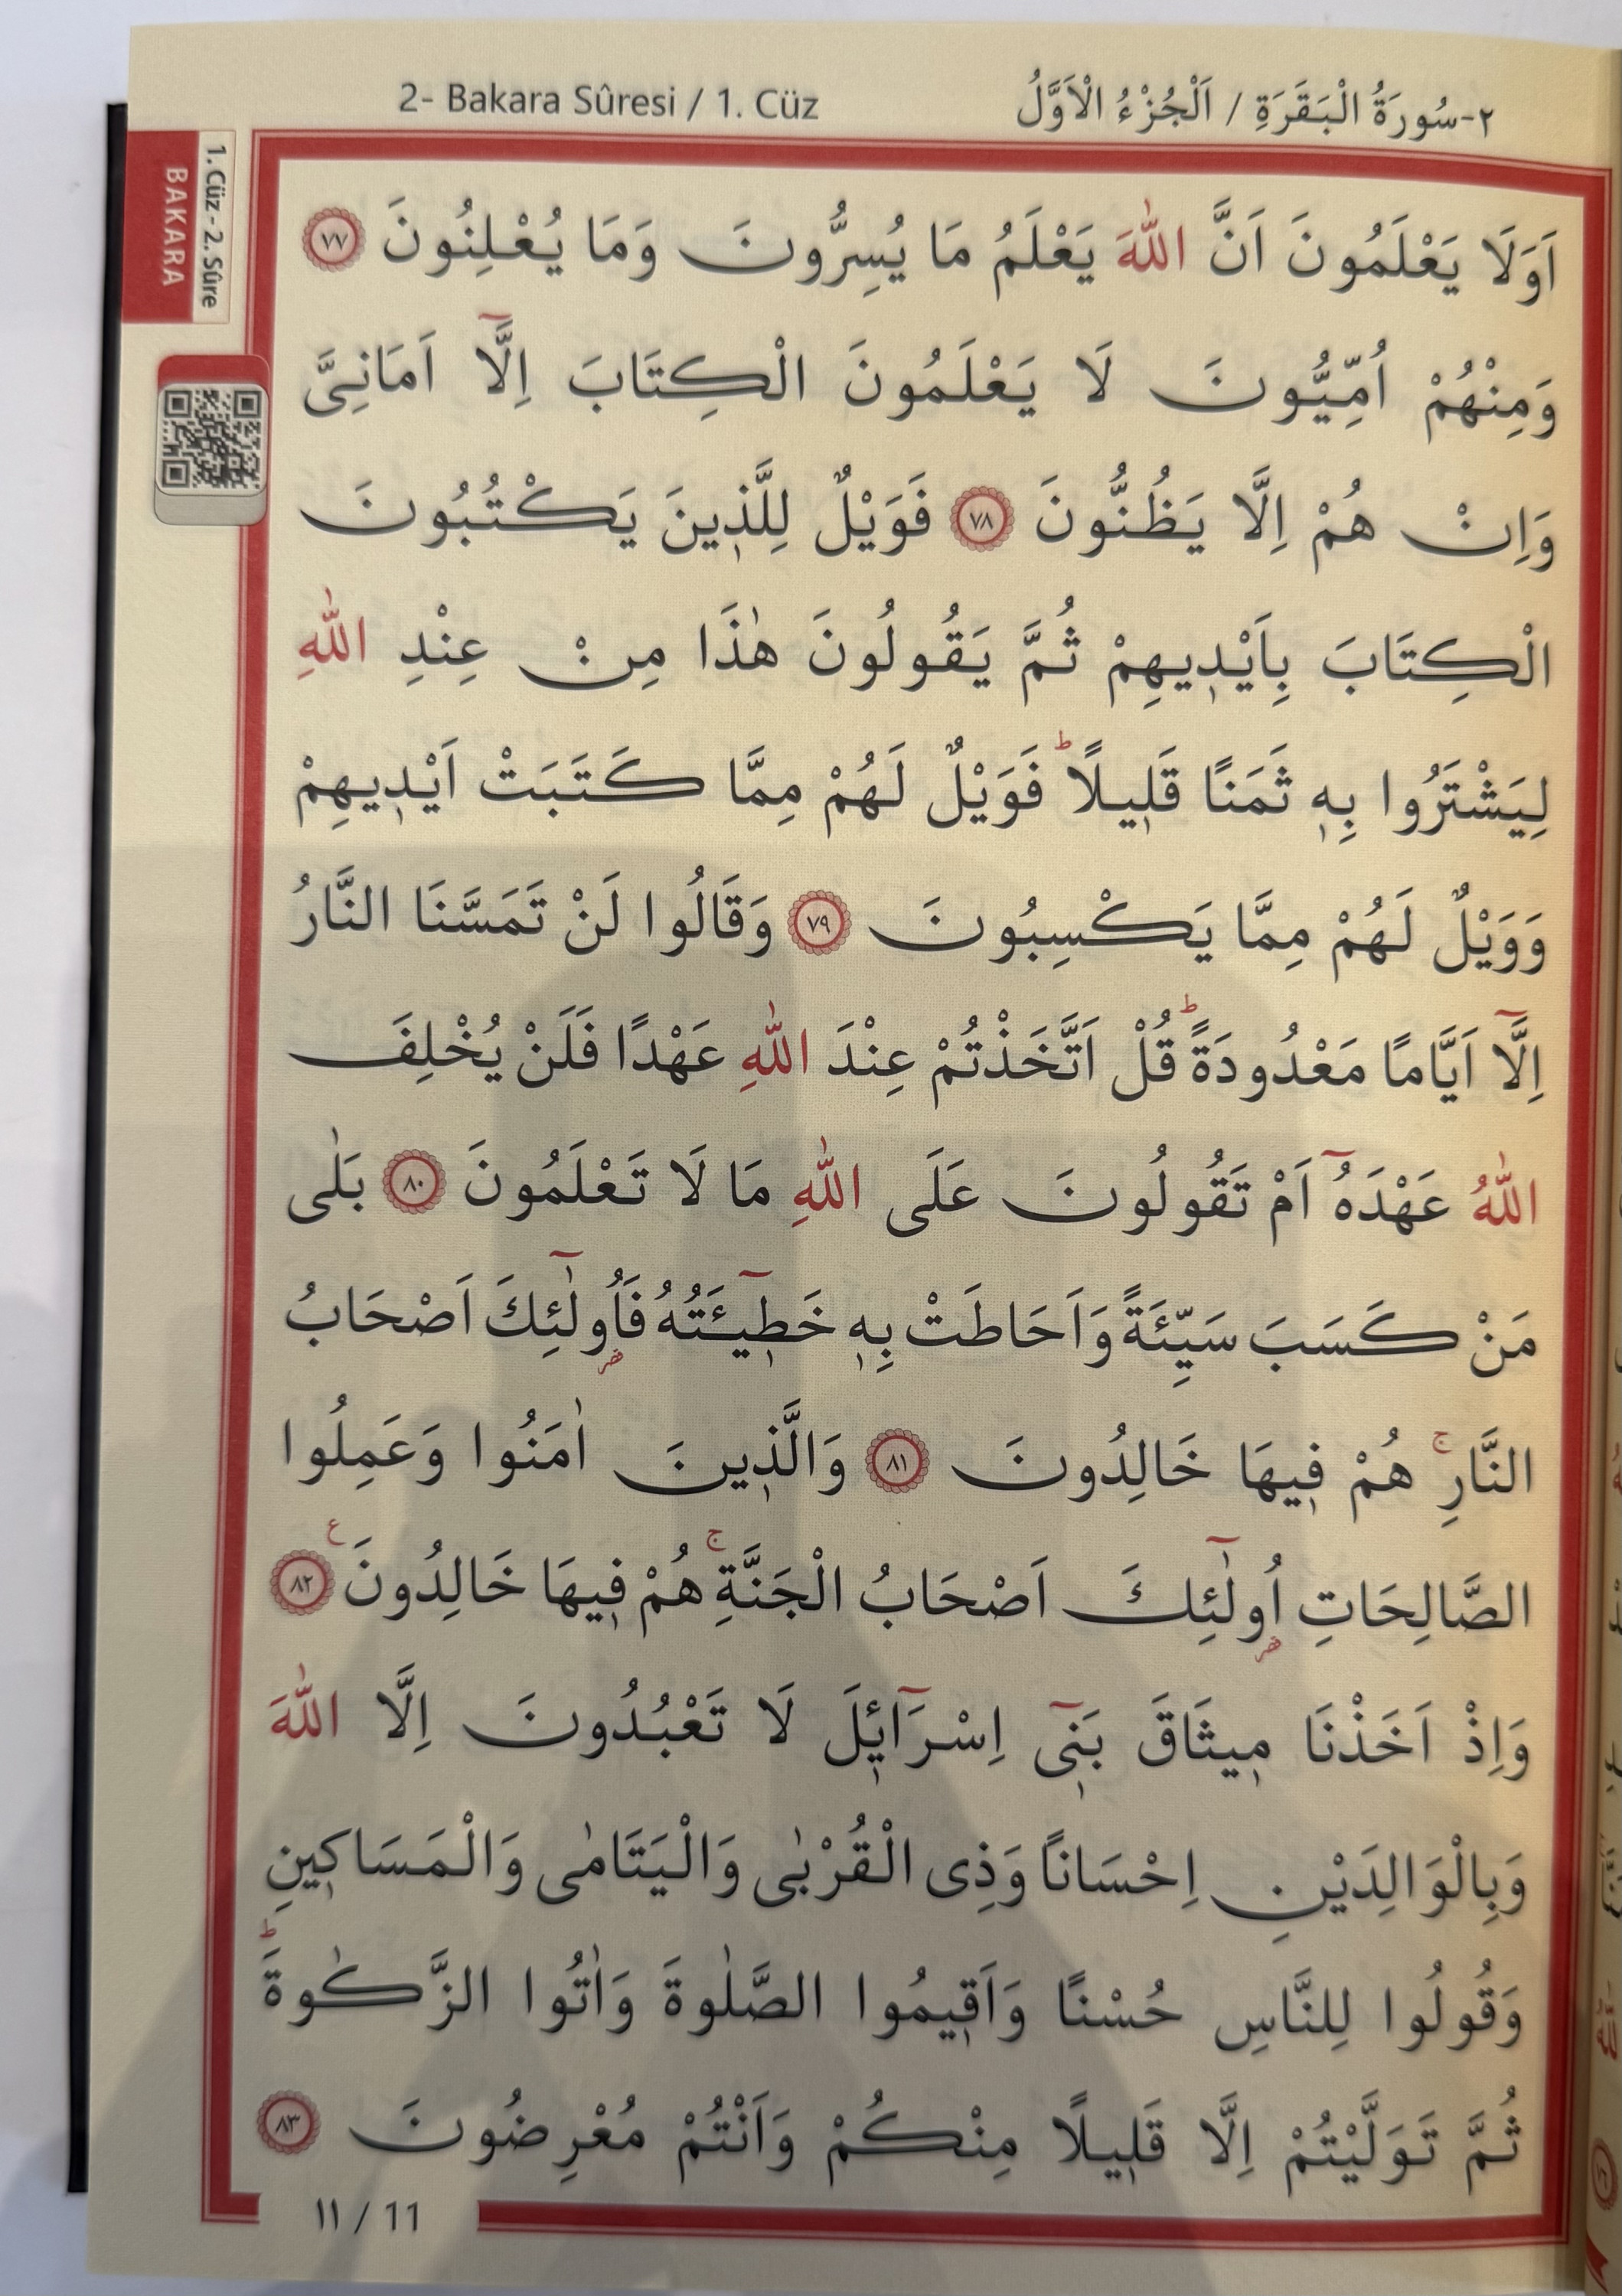 2- Bakara Sûresi / 1. Cüz
٢-سُورَةُ الْبَقَرَةِ / اَلْجُزْءُ الْاَوَّلُ
1. Cüz - 2. Sûre
BAKARA
اَوَلَا يَعْلَمُونَ اَنَّ اللّٰهَ يَعْلَمُ مَا يُسِرُّونَ وَمَا يُعْلِنُونَ ﴿٧٧﴾
وَمِنْهُمْ اُمِّيُّونَ لَا يَعْلَمُونَ الْكِتَابَ اِلَّٓا اَمَانِىَّ
وَاِنْ هُمْ اِلَّا يَظُنُّونَ ﴿٧٨﴾ فَوَيْلٌ لِلَّذ۪ينَ يَكْتُبُونَ
الْكِتَابَ بِاَيْد۪يهِمْ ثُمَّ يَقُولُونَ هٰذَا مِنْ عِنْدِ اللّٰهِ
لِيَشْتَرُوا بِه۪ ثَمَنًا قَل۪يلًاۜ فَوَيْلٌ لَهُمْ مِمَّا كَتَبَتْ اَيْد۪يهِمْ
وَوَيْلٌ لَهُمْ مِمَّا يَكْسِبُونَ ﴿٧٩﴾ وَقَالُوا لَنْ تَمَسَّنَا النَّارُ
اِلَّٓا اَيَّامًا مَعْدُودَةًۜ قُلْ اَتَّخَذْتُمْ عِنْدَ اللّٰهِ عَهْدًا فَلَنْ يُخْلِفَ
اللّٰهُ عَهْدَهُٓ اَمْ تَقُولُونَ عَلَى اللّٰهِ مَا لَا تَعْلَمُونَ ﴿٨٠﴾ بَلٰى
مَنْ كَسَبَ سَيِّئَةً وَاَحَاطَتْ بِه۪ خَط۪ٓيـَٔتُهُ فَاُو۬لٰٓئِكَ اَصْحَابُ
النَّارِۚ هُمْ ف۪يهَا خَالِدُونَ ﴿٨١﴾ وَالَّذ۪ينَ اٰمَنُوا وَعَمِلُوا
الصَّالِحَاتِ اُو۬لٰٓئِكَ اَصْحَابُ الْجَنَّةِۚ هُمْ ف۪يهَا خَالِدُونَ۟ ﴿٨٢﴾
وَاِذْ اَخَذْنَا م۪يثَاقَ بَن۪ٓى اِسْرَٓائ۪لَ لَا تَعْبُدُونَ اِلَّا اللّٰهَ
وَبِالْوَالِدَيْنِ اِحْسَانًا وَذِى الْقُرْبٰى وَالْيَتَامٰى وَالْمَسَاك۪ينِ
وَقُولُوا لِلنَّاسِ حُسْنًا وَاَق۪يمُوا الصَّلٰوةَ وَاٰتُوا الزَّكٰوةَۜ
ثُمَّ تَوَلَّيْتُمْ اِلَّا قَل۪يلًا مِنْكُمْ وَاَنْتُمْ مُعْرِضُونَ ﴿٨٣﴾
١١ / 11